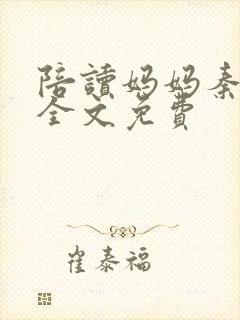 陪讀妈妈秦
全文免費
崔泰福